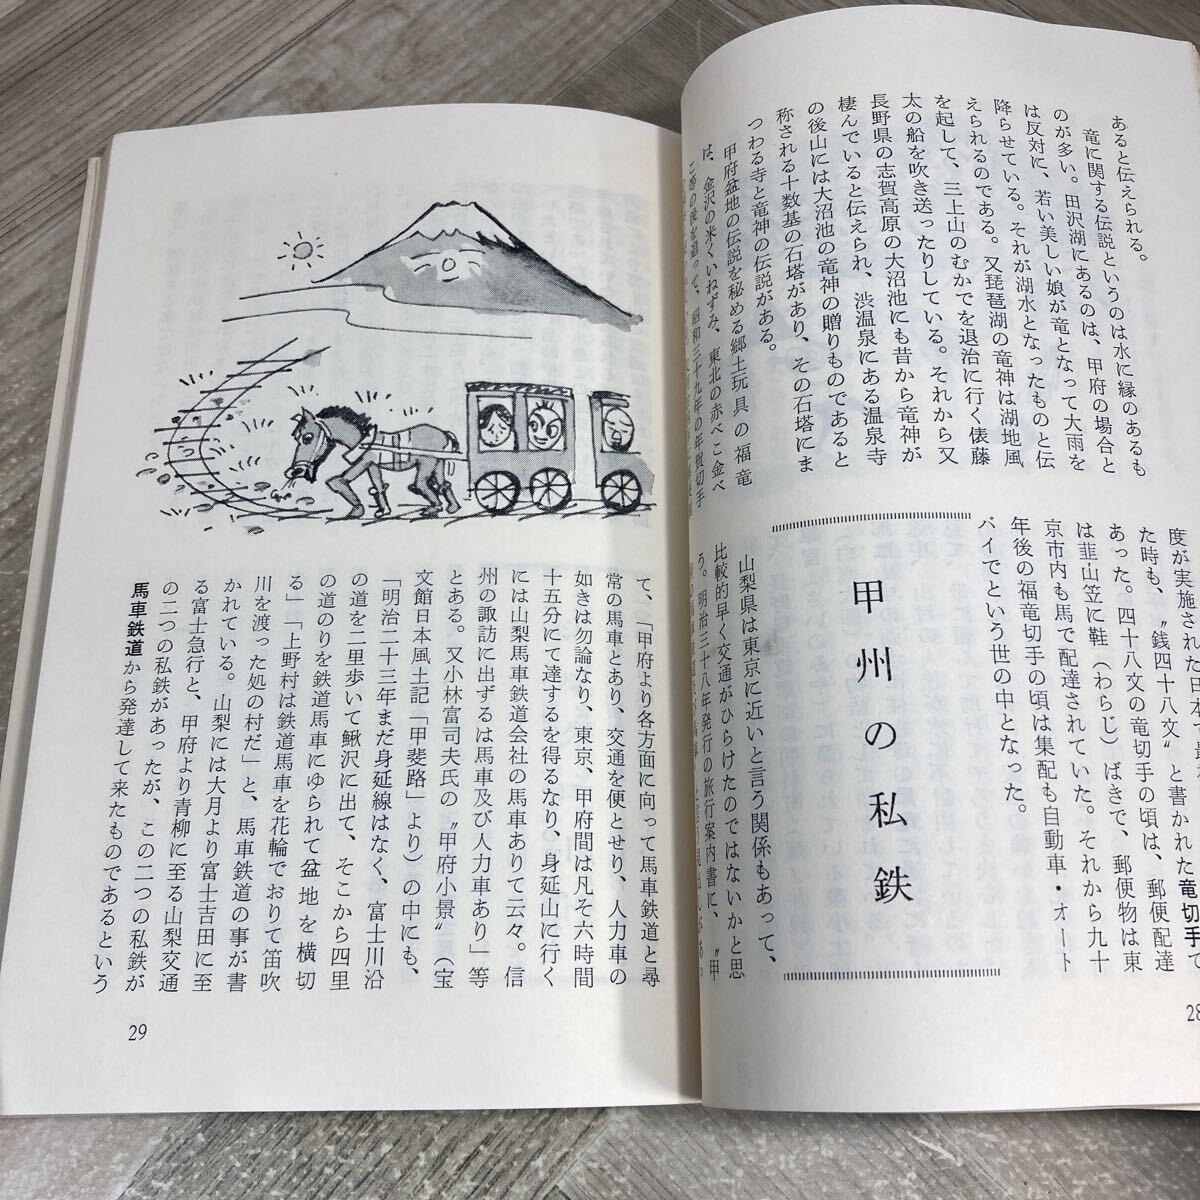 あると伝えられる。
竜に関する伝説というのは水に縁のあるも
のが多い。田沢湖にあるのは、甲府の場合と
は反対に、若い美しい娘が竜となって大雨を
降らせている。それが湖水となったものと伝
えられるのである。又琵琶湖の竜神は湖地風
を起して、三上山のむかでを退治に行く俵藤
太の船を吹き送ったりしている。それから又
長野県の志賀高原の大沼池にも昔から竜神が
棲んでいると伝えられ、渋温泉にある温泉寺
の後山には大沼池の竜神の贈りものであると
称される十数基の石塔があり、その石塔にま
つわる寺と竜神の伝説がある。
甲府盆地の伝説を秘める郷土玩具の福竜
は、金沢の米くいねずみ、東北の赤べこ金べ
こ等の後を追って、昭和三十九年の年賀切手
度が実施された日本で最
た時も、〝銭四十八文〟と書かれた竜切手で
あった。四十八文の竜切手の頃は、郵便配達
は韮山笠に鞋（わらじ）ばきで、郵便物は東
京市内も馬で配達されていた。それから九十
年後の福竜切手の頃は集配も自動車・オート
バイでという世の中となった。
甲州の私鉄
山梨県は東京に近いと言う関係もあって、
比較的早く交通がひらけたのではないかと思
う。明治三十八年発行の旅行案内書に、〝甲
28
て、「甲府より各方面に向って馬車鉄道と尋
常の馬車とあり、交通を便とせり、人力車の
如きは勿論なり、東京、甲府間は凡そ六時間
十五分にて達するを得るなり、身延山に行く
には山梨馬車鉄道会社の馬車ありて云々。信
州の諏訪に出ずるは馬車及び人力車あり」等
とある。又小林富司夫氏の〝甲府小景〟（宝
文館日本風土記「甲斐路」より）の中にも、
「明治二十三年まだ身延線はなく、富士川沿
の道を二里歩いて鰍沢に出て、そこから四里
の道のりを鉄道馬車にゆられて盆地を横切
る」「上野村は鉄道馬車を花輪でおりて笛吹
川を渡った処の村だ」と、馬車鉄道の事が書
かれている。山梨には大月より富士吉田に至
る富士急行と、甲府より青柳に至る山梨交通
の二つの私鉄があったが、この二つの私鉄が
馬車鉄道から発達して来たものであるという
29